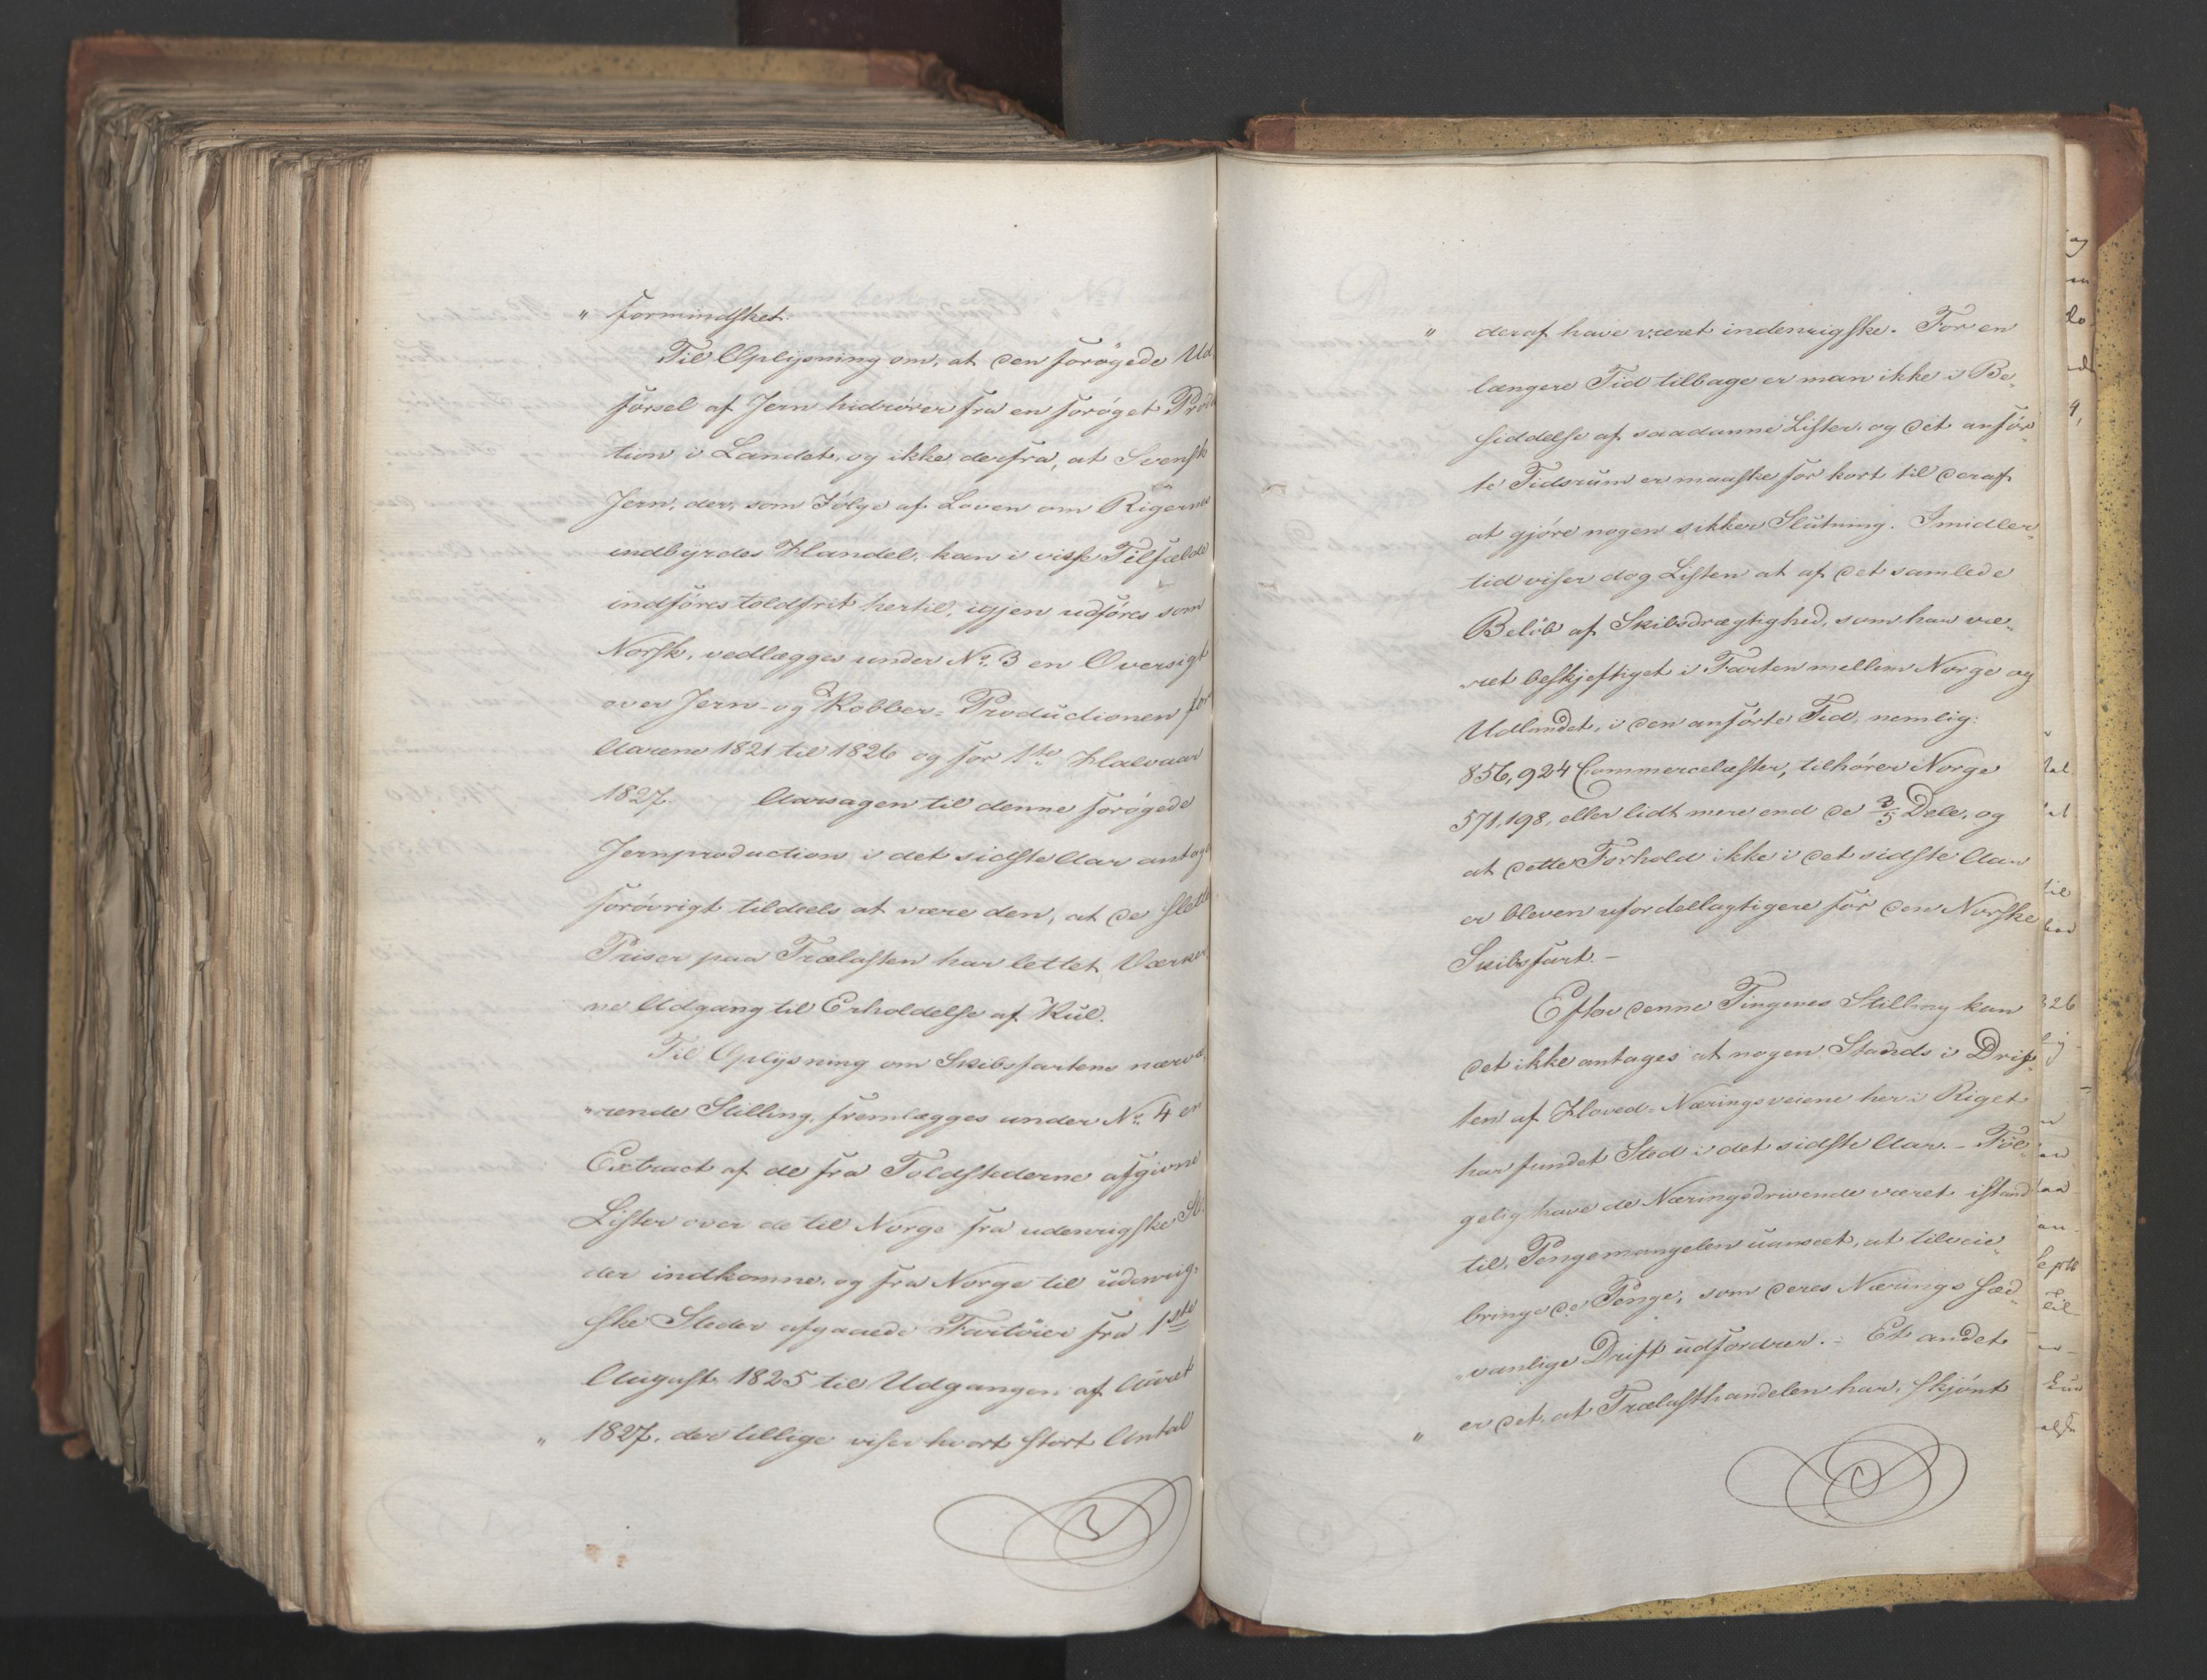 " formindsket.
Til Oplysning om, at den forøgede Ud
førsel af Jern hidrører fra en forøget Prod
tion i Landet, og ikke derfra, at Svensk
Jern, der, som Følge af Loven om Rigernes
indbyrdes Handel, kan i visse Tilfælde
indføres toldfrit hertil, igjen udføres som
Norsk, vedlægges under No. 3 en Oversigt
over Jern- og Kobber- Productionen for
Aarene 1821 til 1826 og for 1te Halvaar
1827. Aarsagen til denne forøgede
Jernproduction i det sidste Aar antage
forøvrigt tildeels at være den, at de slette
Priser paa Trælasten har lettet Værker
ne Adgang til Erholdelse af Kul.
Til Oplysning om Skibsfartens nærvæ
"rende Stilling, fremlægges under No. 4 en
Extract af de fra Toldstederne afgivne
Lister over de til Norge fra udenrigske St.
der indkomne, og fra Norge til udenrig-
ske Steder afgaaede Fartøier fra 1ste
August 1825 til Udgangen af Aaret
" 1827, der tillige viser hvort stort Antal
" deraf have været indenrigske. For en
længere Tid tilbage er man ikke i Be-
siddelse af saadanne Lister, og det anfør
te Tidsrum er maaske for kort til deraf
at gjøre nogen sikker Slutning. Imidler-
tid viser dog Listen at af det samlede
Beløb af Skibsdrægtighed, som har væ-
"ret beskjeftiget i Farten mellem Norge og
Udlandet, i den anførte Tid, nemlig:
856,924 Commercelæster, tilhører Norge
571,198, eller lidt mere end de 3/5 Dele, og
at dette Forhold ikke i det sidste Aar
er bleven ufordellagtigere for den Norske
Skibsfart. -
Efter denne Tingenes Stilling kan
det ikke antages at nogen Stands i Drif-
ten af Hoved- Næringsveiene her i Riget
har fundet Sted i det sidste Aar. - Føl-
gelig have de Næringsdrivende været istand
til, Pengemangelen uanseet, at tilveie-
bringe de Penge, som deres Nærings sæd-
"vanlige Drift udfordrer. - Et andet
" er det, at Trælasthandelen har, skjønt